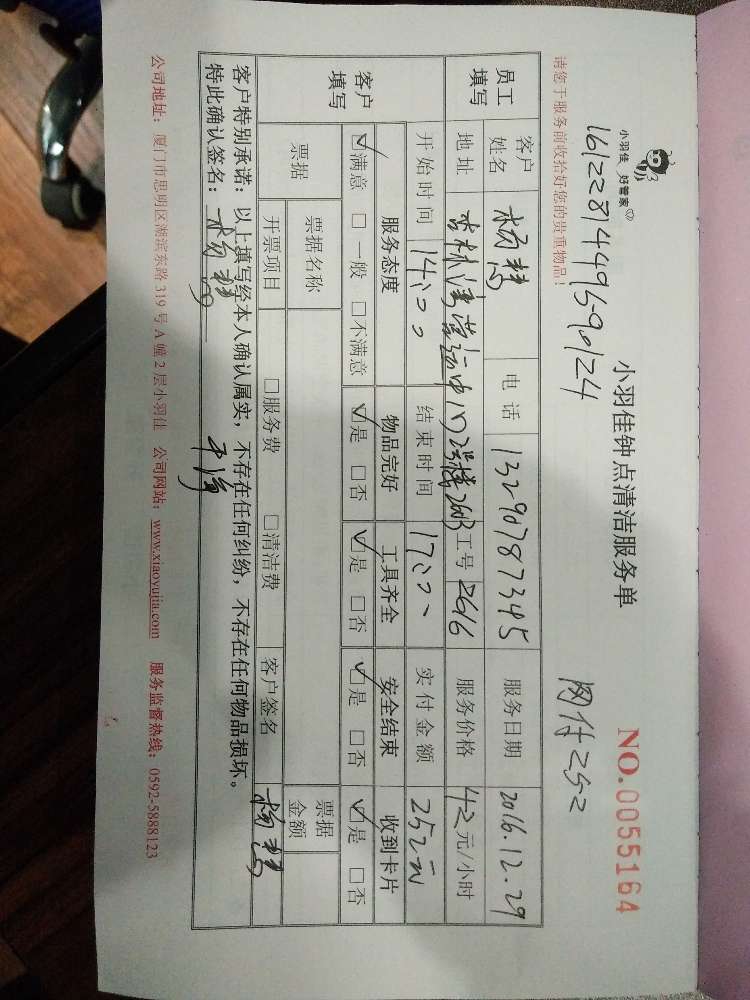 小羽佳 好管家
小羽佳钟点清洁服务单
NO.0055164
1612281449590124
网付252
请您于服务前收拾好您的贵重物品！
员工填写
客户姓名 杨慧 电话 13290787345 服务日期 2016.12.29
地址 杏林湾营运中心2号楼2603 工号 2616 服务价格 42元/小时
开始时间 14:00 结束时间 17:00 实付金额 252元
客户填写
服务态度 物品完好 工具齐全 安全结束 收到卡片
☑满意 □一般 □不满意 ☑是 □否 ☑是 □否 ☑是 □否 ☑是 □否
票据 票据名称 票据金额
开票项目 □服务费 □清洁费 客户签名 杨慧
客户特别承诺：以上填写经本人确认属实，不存在任何纠纷，不存在任何物品损坏。
特此确认签名：杨慧
公司地址：厦门市思明区湖滨东路319号A幢2层小羽佳 公司网站：www.xiaoyujia.com 服务监督热线：0592-5888123